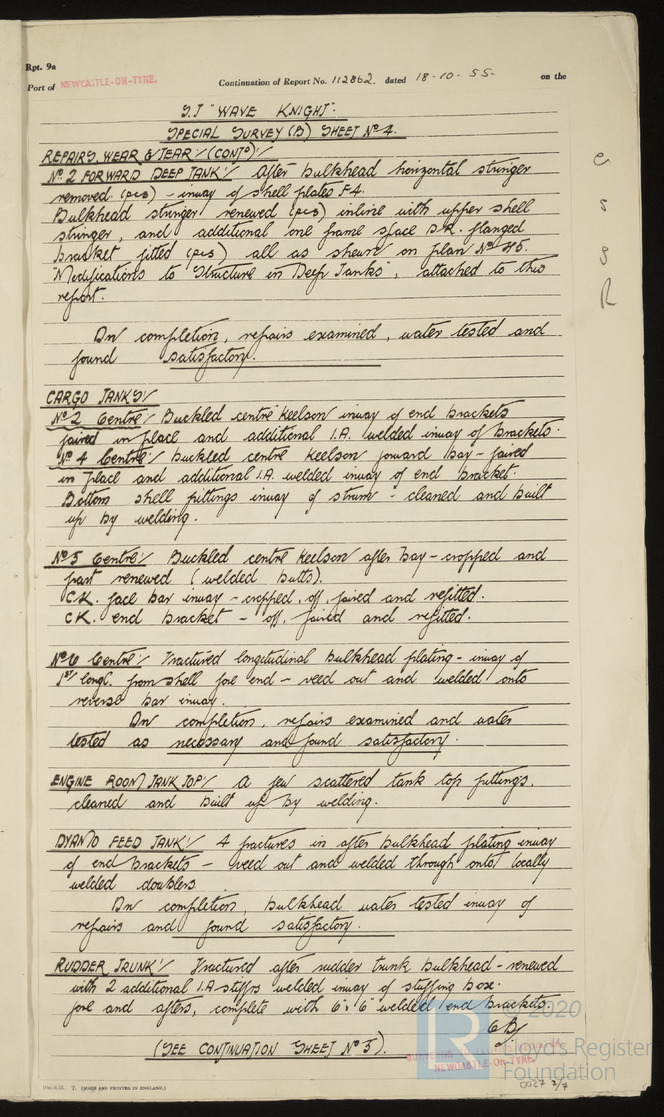 Rpt. 9a
Port of NEWCASTLE-ON-TYNE. Continuation of Report No. 112862. dated 18-10-55- on the
S.T "WAVE KNIGHT".
SPECIAL SURVEY (B) SHEET No 4.
REPAIRS, WEAR & TEAR (CONTD)
No 2 FORWARD DEEP TANK After bulkhead horizontal stringer
removed (p&s) - inway of shell plates F4.
Bulkhead stringer renewed (p&s) inline with upper shell
stringer, and additional one frame space D.K. flanged
bracket fitted (p&s) all as shewn on plan No 45.
"Modifications to Structure in Deep Tanks", attached to this
report.
On completion, repairs examined, water tested and
found satisfactory.
CARGO TANKS
No 2 Centre Buckled centre keelson inway of end brackets
faired in place and additional I.A. welded inway of brackets.
No 4 Centre Buckled centre keelson forward bay - faired
in place and additional I.A. welded inway of end bracket.
Bottom shell pittings inway of strum - cleaned and built
up by welding.
No 5 Centre Buckled centre keelson after bay - cropped and
part renewed (welded butts).
C.K. face bar inway - cropped, off, faired and refitted.
C.K. end bracket - off, faired and refitted.
No 6 Centre Fractured longitudinal bulkhead plating - inway of
1st longl. from shell fore end - veed out and welded onto
reverse bar inway.
On completion, repairs examined and water
tested as necessary and found satisfactory.
ENGINE ROOM TANK TOP A few scattered tank top pittings,
cleaned and built up by welding.
DYAND FEED TANK 4 fractures in after bulkhead plating inway
of end brackets - veed out and welded through onto locally
welded doublers.
On completion, bulkhead water tested inway of
repairs and found satisfactory.
RUDDER TRUNK Fractured after rudder trunk bulkhead - renewed
with 2 additional I.A stiffrs welded inway of stuffing box.
fore and afters, complete with 6"x6" welded end brackets.
(SEE CONTINUATION SHEET No 5).
NEWCASTLE-ON-TYNE.
© 2020
LR
Lloyd's Register
Foundation
0027 3/7